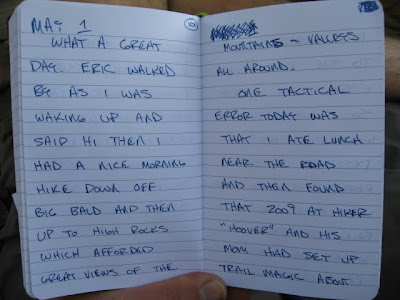 MAY 1
WHAT A GREAT
DAY. ERIC WALKED
BY AS I WAS
WAKING UP AND
SAID HI THEN I
HAD A NICE MORNING
HIKE DOWN OFF
BIG BALD AND THEN
UP TO HIGH ROCKS
WHICH AFFORDED
GREAT VIEWS OF THE
MOUNTAINS & VALLEYS
ALL AROUND.
ONE TACTICAL
ERROR TODAY WAS
THAT I ATE LUNCH
NEAR THE ROAD
AND THEN FOUND
THAT 2009 AT HIKER
"HOOVER" AND HIS
MOM HAD SET UP
TRAIL MAGIC ABOUT